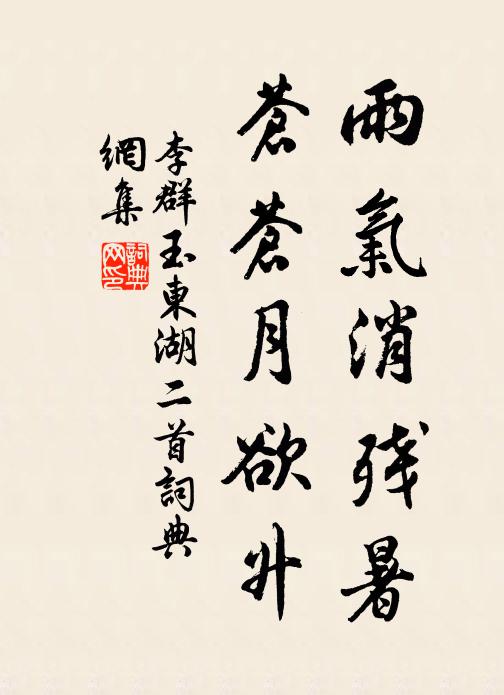 雨氣消殘暑
蒼蒼月欲升
李群玉東湖二首詞典
網集
詞典
网印